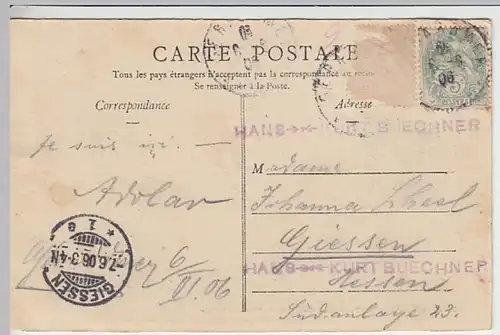 CARTE POSTALE
Tous les pays étrangers n'acceptent pas la correspondance au recto
Se renseigner à la Poste.
Correspondance
Adresse
HANS KURT BUECHNER
Je suis ici. —
Adolar
6/VI. 06
Madame
Johanna
Giessen
HANS KURT BUECHNER
Hessen
Südanlage 23.
GIESSEN
-7.6.06.3-4N
* 1 G
06
5